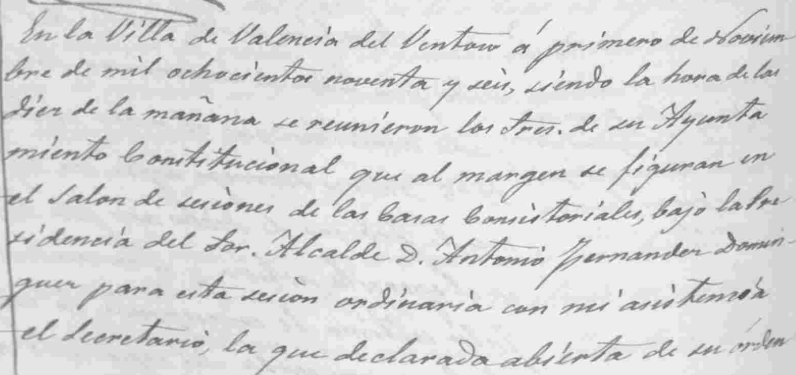 En la Villa de Valencia del Ventoso á primero de Noviem
bre de mil ochocientos noventa y seis, siendo la hora de las
diez de la mañana se reunieron los Sres. de su Ayunta
miento Constitucional que al margen se figuran en
el Salon de sesiones de las Casas Consistoriales, bajo la Pre
sidencia del Sor. Alcalde D. Antonio Fernandez Domin-
guez para esta sesion ordinaria con mi asistencia
el Secretario, la que declarada abierta de su órden